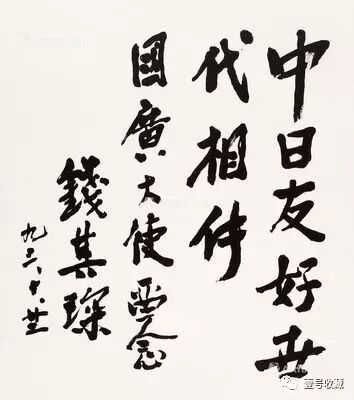 中日友好世
代相伴
國廣大使留念
錢其琛
九三、十、廿
壹号收藏